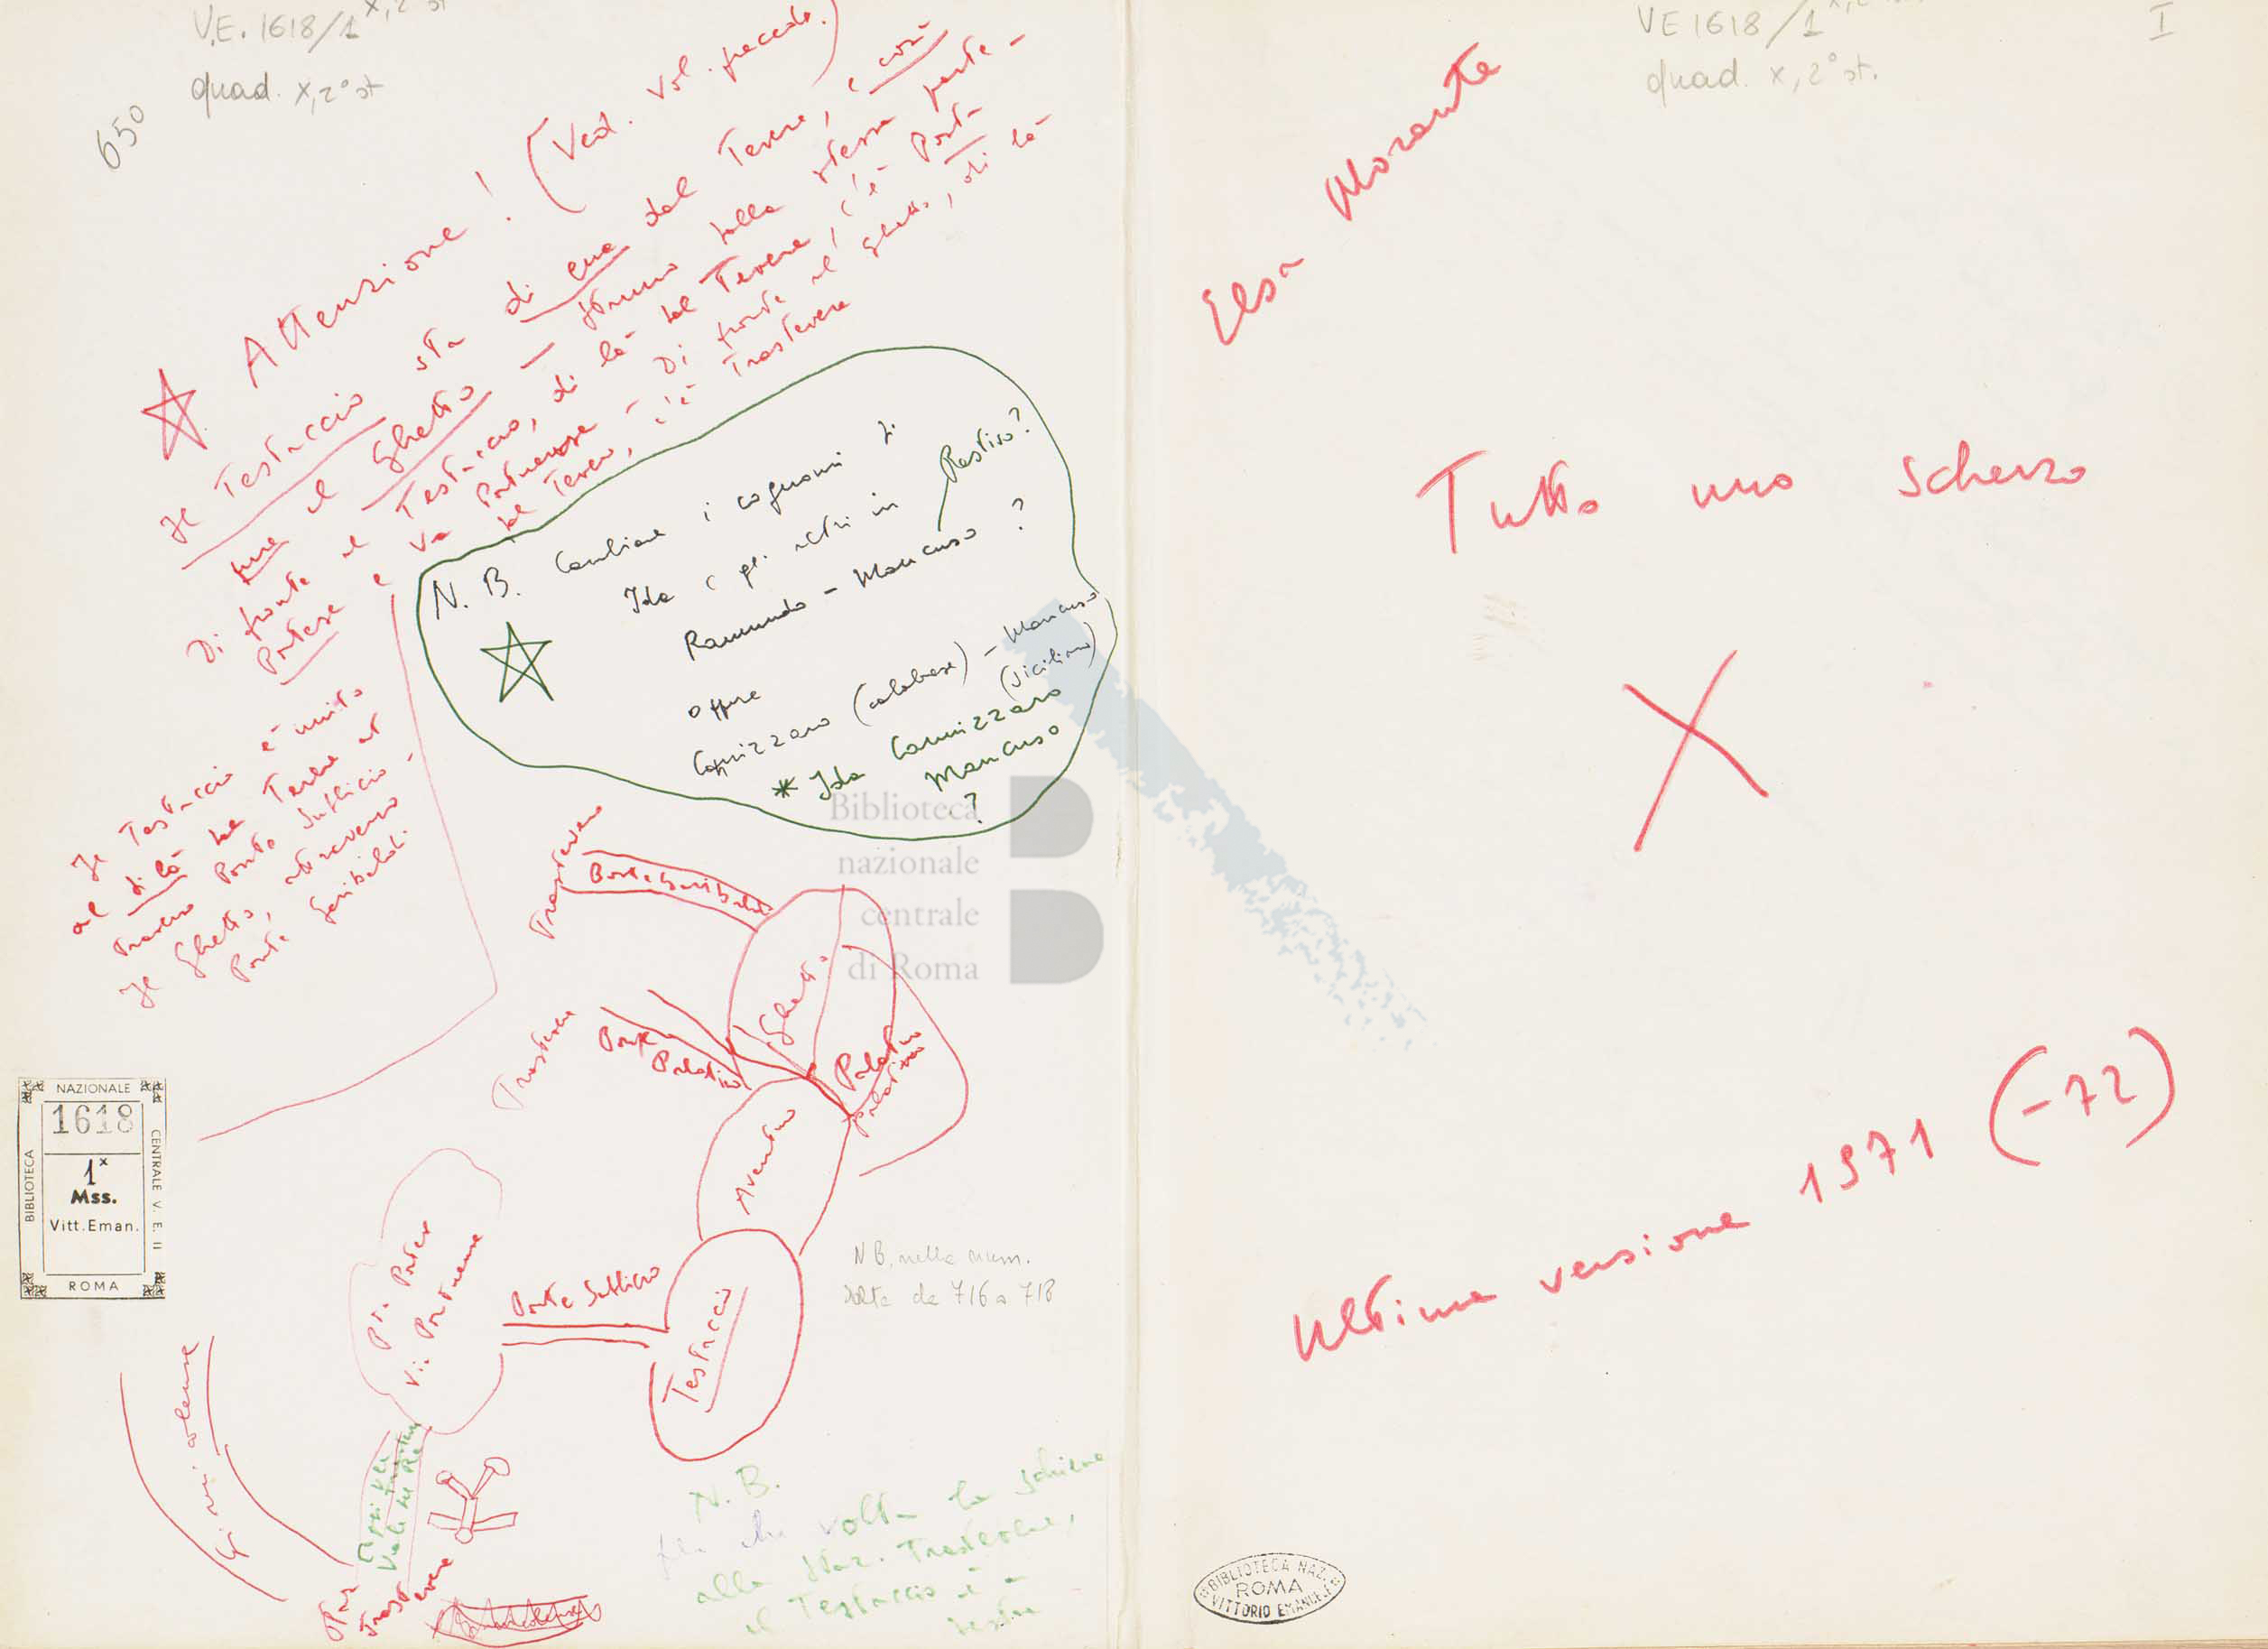 V.E. 1618/1 x, 2 st
quad. x, 2° st
650
Attenzione! (Ved. vol. preced.)
Il Testaccio sta di qua dal Tevere, e così
pure il Ghetto — stanno dalla stessa parte -
Di fronte al Testaccio, di là dal Tevere, c'è Porta
Portese e Via Portuense - Di fronte al Ghetto, di là
dal Tevere, c'è Trastevere
N.B. Cambiare i cognomi di
Ida e gli altri in
Ramundo - Mancuso ?
Restivo?
oppure
Cannizzaro (calabrese) - Mancuso
(siciliano)
* Ida Cannizzaro
Mancuso
?
Il Testaccio è unito
al di là del Tevere
Ponte Sublicio -
Il Ghetto, attraverso
Ponte Garibaldi
Trastevere
Ponte Garibaldi
Ghetto
Trastevere
Ponte
Palatino
Palatino
Palatino
Aventino
Pta Portese
Via Portuense
Ponte Sublicio
Testaccio
NB. nella num.
salta da 716 a 718
Gianicolense
Viale del Re
Staz
Trastevere
N.B.
volta la schiena
alla Staz. Trastevere,
il Testaccio è a
destra
NAZIONALE
BIBLIOTECA
CENTRALE V. E. II
1618
1x
Mss.
Vitt.Eman.
ROMA
Biblioteca
nazionale
centrale
di Roma
VE 1618/1
quad. x, 2° st.
I
Elsa Morante
Tutto uno scherzo
X
Ultima versione 1971 (-72)
BIBLIOTECA NAZ.
ROMA
VITTORIO EMANUELE